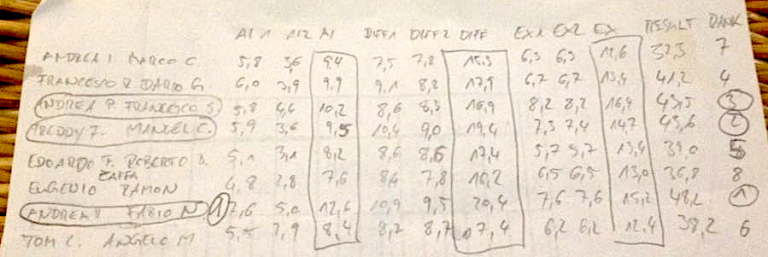 AI 1 AI2 AI DIFF1 DIFF2 DIFF EX1 EX2 EX RESULT RANK
ANDREA I MARCO C. 5,8 3,6 9,4 7,5 7,8 15,3 6,3 6,3 12,6 37,3 7
FRANCESCO R DARIO G 6,0 3,9 9,9 9,1 8,8 17,9 6,7 6,7 13,4 41,2 4
ANDREA P. FRANCESCO S. 5,8 4,4 10,2 8,6 8,3 16,9 8,2 8,2 16,4 43,5 3
FREDDY F. MANUEL C. 5,9 3,6 9,5 10,4 9,0 19,4 7,3 7,4 14,7 43,6 2
EDOARDO F. ROBERTO 5,1 3,1 8,2 8,6 8,6 17,4 5,7 5,7 13,4 39,0 5
EUGENIO ZAFFA RAMON 4,8 2,8 7,6 8,4 7,8 16,2 6,5 6,5 13,0 36,8 8
ANDREA FABIO N 1 7,6 5,0 12,6 10,9 9,5 20,4 7,6 7,6 15,2 48,2 1
TOM C. ANGELO M 5,5 2,9 8,4 8,7 8,7 17,4 6,2 6,2 12,4 38,2 6